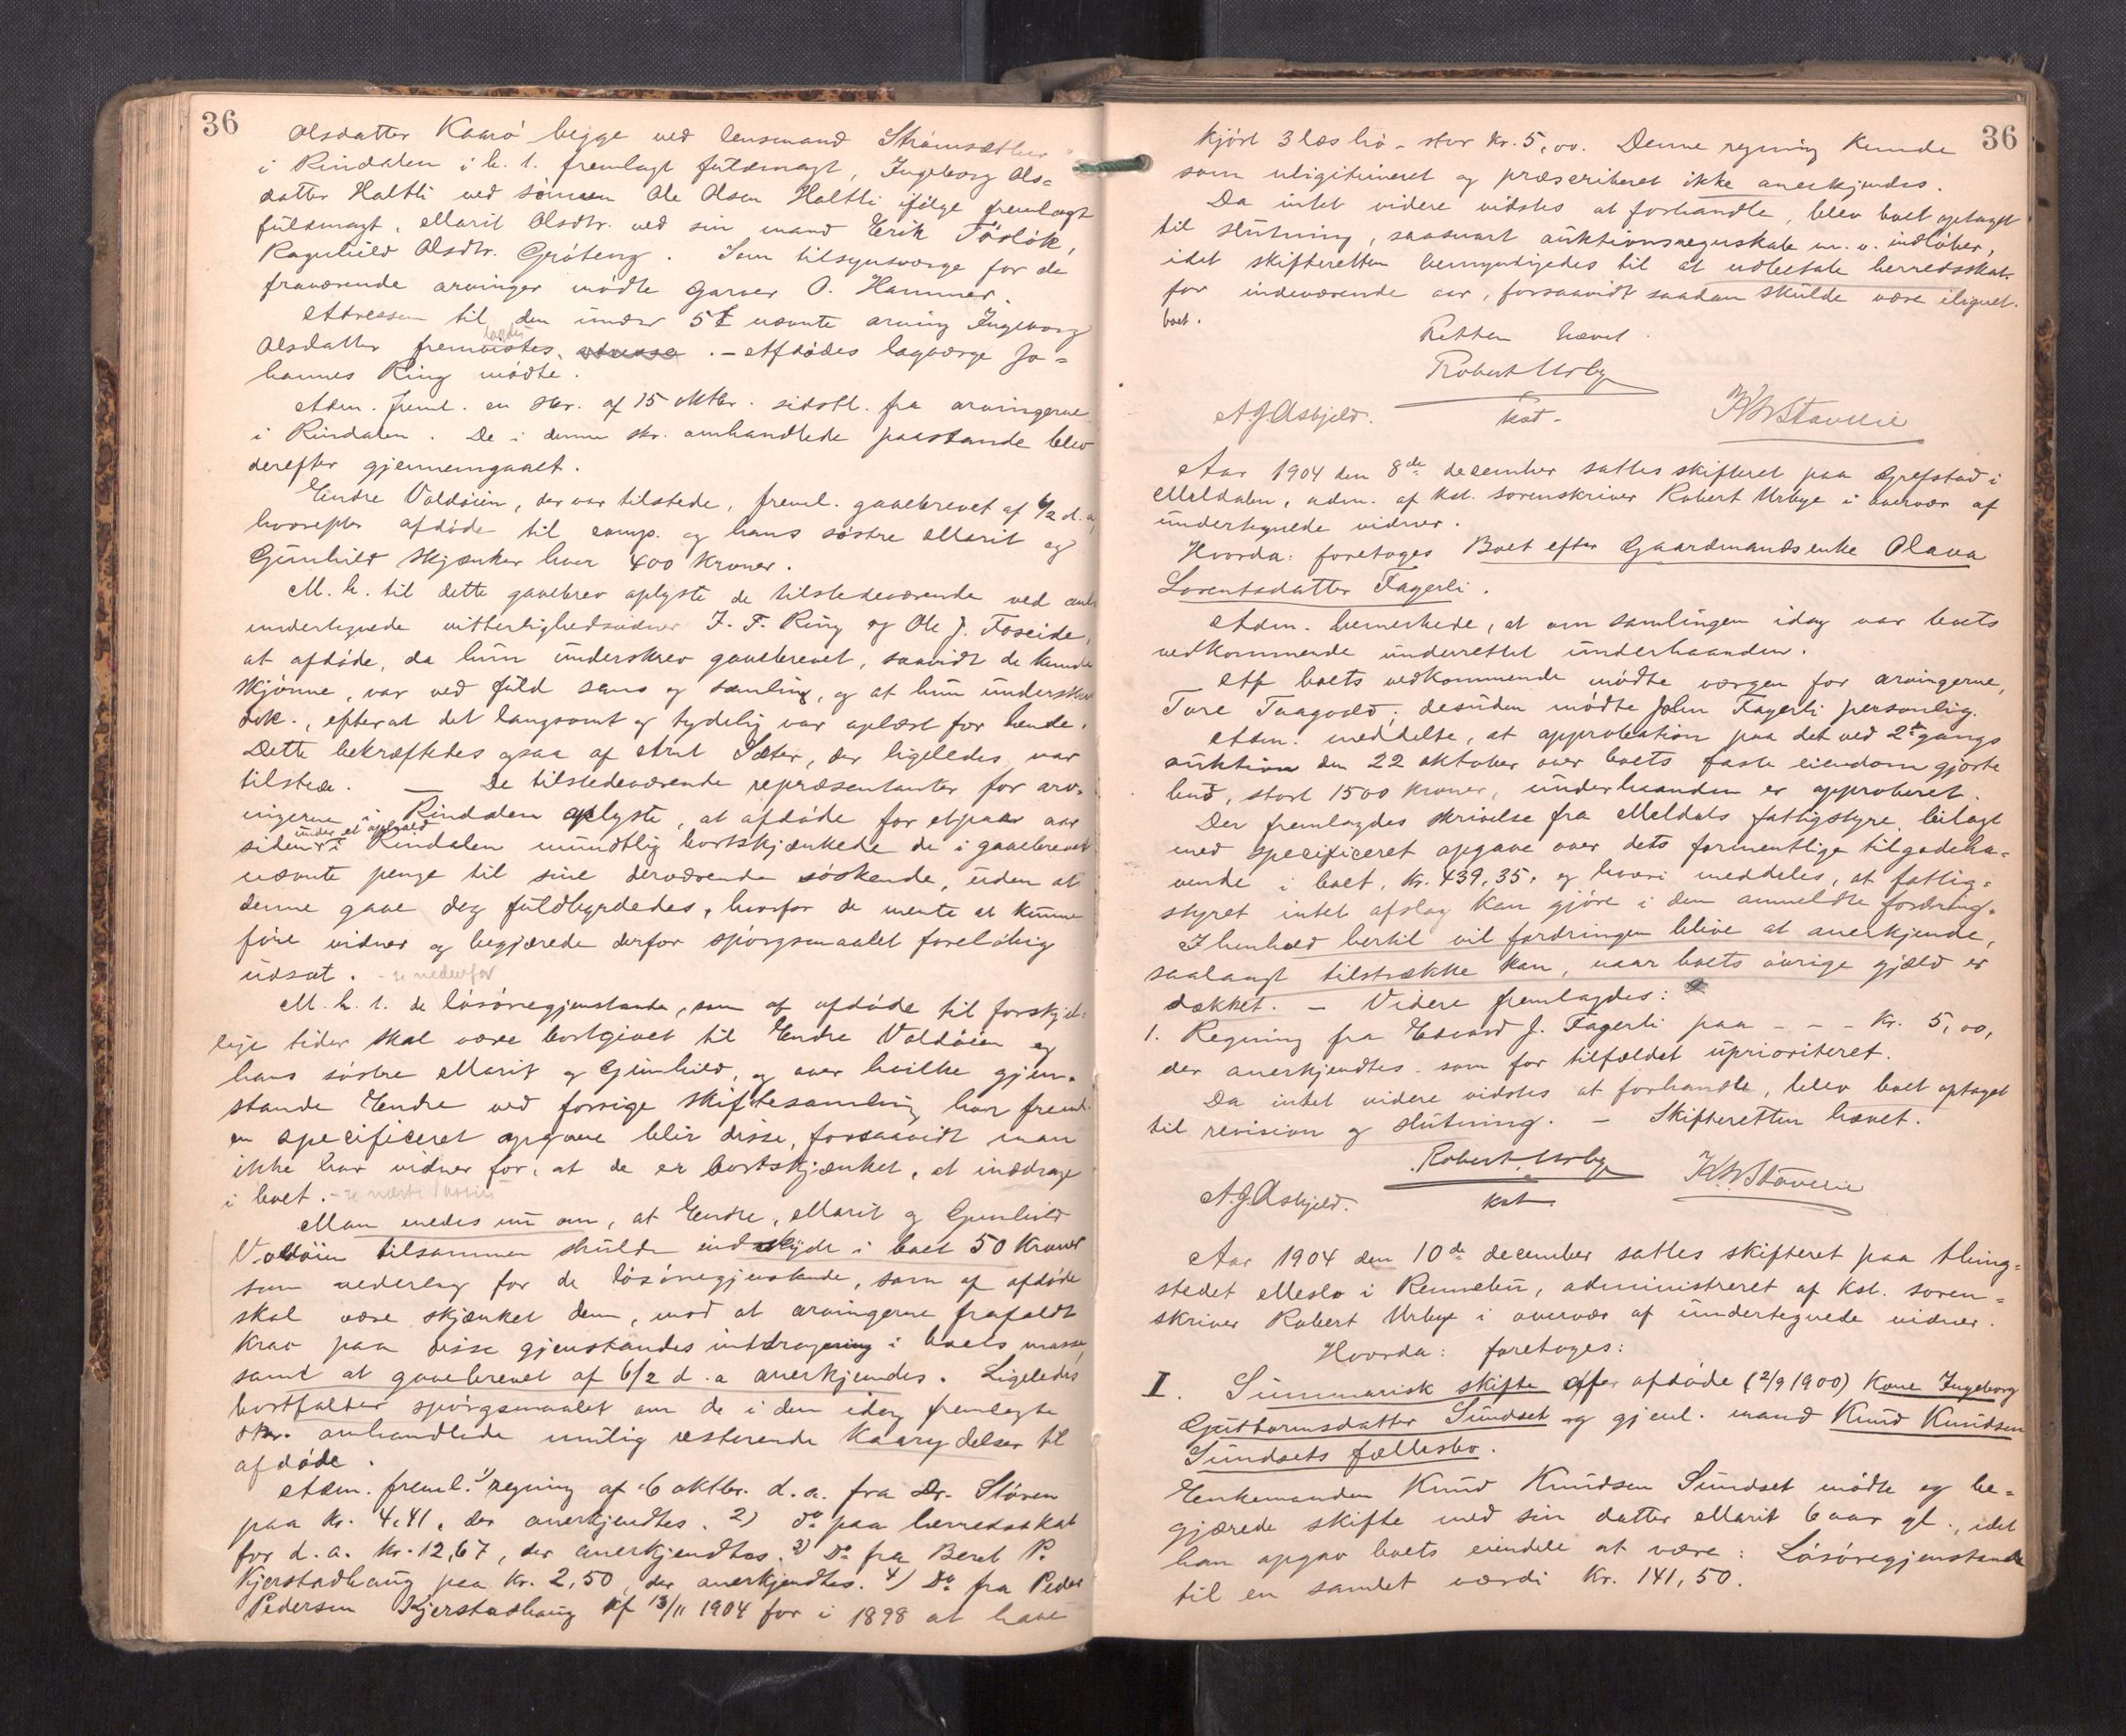 36
Olsdatter Kaarø begge ved lensmand Strømsæther
i Rindalen i h. t. fremlagt fuldmagt, Ingeborg Ols=
datter Haltli ved sønnen Ole Olsen Haltli ifølge fremlagt
fuldmagt, Marit Olsdtr. ved sin mand Erik
Ragnhild Olsdtr. Grøteng. Som tilsynsværge for de
fraværende arvinger mødte garver O. Hammer.
Adressen til den under 5t nævnte arving Ingeborg
Olsdatter fremvistes. – Afdødes lagværge Jo=
hannes Ring mødte.
Adm. freml. en skr. af 15 oktbr. sidstl. fra arvingerne
i Rindalen. De i denne skr. omhandlede paastande blev
derefter gjennemgaaet.
Endre Voldøien, der var tilstede, freml. gavebrevet af 6/2 d. a,
hvorefter afdøde til comp. og hans søstre Marit og
Gunhild skjænker hver 400 kroner.
M. h. til dette gavebrev oplyste de tilstedeværende ved
undertegnede vitterlighedsvidner J. F. Ring og Ole J. Foseide,
at afdøde, da hun underskrev gavebrevet, saavidt de kunde
skjønne, var ved fuld sans og samling, og at hun underskrev
dok., efterat det langsomt og tydelig var oplæst for hende.
Dette bekræftedes ogsaa af Arnt Sæter, der ligeledes var
tilstede. — De tilstedeværende repræsentanter for arv=
ingerne i Rindalen oplyste, at afdøde for et par aar
siden under et ophold i Rindalen mundtlig bortskjænkede de i gavebrevet
nævnte penge til sine derværende søskende, uden at
denne gave dog fuldbyrdedes, hvorfor de mente at kunne
føre vidner og begjærede derfor spørgsmaalet foreløbig
udsat. – se nedenfor
M. h. t. de løsøregjenstande, som af afdøde til forskjel=
lige tider skal være bortgivet til Endre Voldøien og
hans søstre Marit og Gunhild, og over hvilke gjen=
stande Endre ved forrige skiftesamling har freml.
en specificeret opgave blir disse, forsaavidt man
ikke har vidner for, at de er bortskjænket, at inddrage
i boet. – se næste
Man enedes nu om, at Endre, Marit og Gunhild
Voldøien tilsammen skulde indskyde i boet 50 kroner
som vederlag for de løsøregjenstande, som af afdøde
skal være skjænket dem, mod at arvingerne frafaldt
krav paa disse gjenstandes inddragning i boets masse,
samt at gavebrevet af 6/2 d. a anerkjendes. Ligeledes
bortfalder spørgsmaalet om de i den idag fremlagte
skr. omhandlede mulig resterende kaarydelser til
afdøde.
Adm. freml. 1) regning af 6 oktbr. d. a. fra Dr. Støren
paa kr. 4,41, der anerkjendtes. 2) do paa herredsskat
for d. a. kr. 12,67, der anerkjendtes. 3) Do fra Beret P.
Kjerstadhaug paa kr. 2,50, der anerkjendtes. 4) Do fra Peder
Pedersen Kjerstadhaug af 13/11 1904 for i 1898 at have
36
kjørt 3 læs hø – stor kr. 5,00. Denne regning kunde
som ulegitimeret og præscriberet ikke anerkjendes.
Da intet videre vidstes at forhandle, blev boet optaget
til slutning, saasnart auktionsregnskab m. v. indløber,
idet skifteretten bemyndigedes til at udbetale herredsskat
for indeværende aar, forsaavidt saadan skulde være ilignet
boet.
Retten hævet.
Robert Urbye
kst.
A. J. Asbjeld.
K. N. Stavne
Aar 1904 den 8de december sattes skifteret paa Grefstad i
Meldalen, adm. af kst. sorenskriver Robert Urbye i overvær af
undertegnede vidner.
Hvorda: foretoges Boet efter Gaardmandsenke Olava
Lorentsdatter Fagerli.
Adm. bemerkede, at om samlingen idag var boets
vedkommende underrettet underhaanden.
Af boets vedkommende mødte værgen for arvingerne,
Tore; desuden mødte John Fagerli personlig.
Adm. meddelte, at approbation paa det ved 2den gangs
auktion den 22 oktober over boets faste eiendom gjorte
bud, stort 1500 kroner, underhaanden er approberet.
Der fremlagdes skrivelse fra Meldals fattigstyre bilagt
med specificeret opgave over dets formentlige tilgodeha=
vende i boet, kr. 439,35, og hvori meddeles, at fattig=
styret intet afslag kan gjøre i den anmeldte fordring.
I henhold hertil vil fordringen blive at anerkjende,
saalangt tilstrække kan, naar boets øvrige gjæld er
dækket. – Videre fremlagdes:
1. Regning fra Edvard J. Fagerli paa - - - kr. 5,00,
der anerkjendtes som for tilfældet uprioriteret.
Da intet videre vidstes at forhandle, blev boet optaget
til revision og slutning. – Skifteretten hævet.
Robert Urbye
kst.
A. J. Asbjeld.
K. N. Stavne
Aar 1904 den 10de december sattes skifteret paa thing=
stedet Meslo i Rennebu, administreret af kst. soren=
skriver Robert Urbye i overvær af undertegnede vidner.
Hvorda: foretoges:
I. Summarisk skifte efter afdøde (2/9 1900) Kone Ingeborg
Guttormsdatter Sundset og gjenl. mand Knud Knudsen
Sundsets fællesbo.
Enkemanden Knud Knudsen Sundset mødte og be=
gjærede skifte med sin datter Marit 6 aar gl., idet
han opgav boets eiendele at være: Løsøregjenstande
til en samlet værdi kr. 141,50.